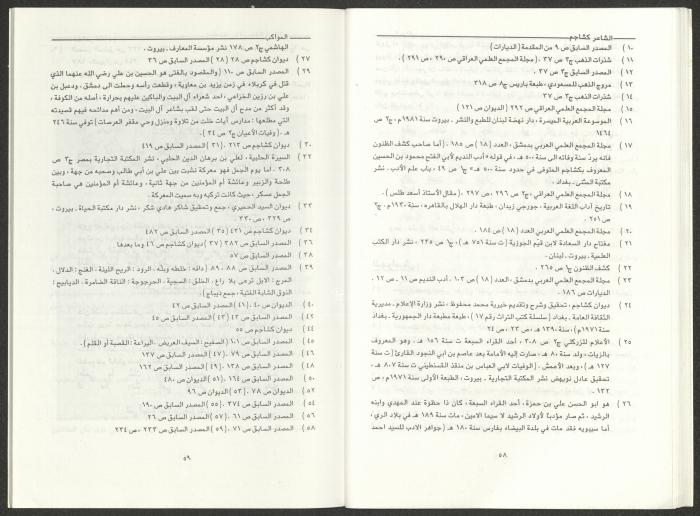 الشاعر كشاجم
١٠) المصدر السابق ص ٩ من المقدمة (الديارات)
١١) شذرات الذهب ج٣ ص ٣٧ . (مجلة المجمع العلمي العراقي ص ٢٩٠ ، ص ٢٩١) .
١٢) المصدر السابق ج٣ ص ٣٧ .
١٣) مروج الذهب للمسعودي ، طبعة باريس ج٨ ص ٣١٨
١٤) شذرات الذهب ج٣ ص ٣٧
١٥) مجلة المجمع العلمي العراقي ص ٢٩٢ (الديوان ص ١٢١)
١٦) الموسوعة العربية الميسرة ، دار نهضة لبنان للطبع والنشر . بيروت سنة ١٩٨١م ، ج٢ ص
١٤٦٤
١٧) مجلة المجمع العلمي العربي بدمشق ، العدد (١٨) ص ١٨٥ . (أما صاحب كشف الظنون
فانه يردّ سنة وفاته الى سنة ٥٠٠ هـ ، في قوله «أدب النديم لأبي الفتح محمود بن الحسين
المعروف بكشاجم المتوفى في حدود سنة ٥٠٠ هـ» ج١ ص ٤٩ ، باب علم الأدب . نشر
مكتبة المثنى ـ بغداد .
١٨) مجلة المجمع العلمي العراقي ، ج٢ ص ٢٩٦ ، ص ٢٩٧ . (مقال الأستاذ أسعد طلس) .
١٩) تاريخ آداب اللغة العربية ، جورجي زيدان . طبعة دار الهلال بالقاهرة ، سنة ١٩٣٠م . ج٢
ص ٢٥١ .
٢٠) مجلة المجمع العلمي العربي ص ١٨٤ .
٢١) مفتاح دار السعادة لابن قيّم الجوزية (ت سنة ٧٥١ هـ) ، ج١ ص ٢٣٥ ، نشر دار الكتب
العلمية . بيروت . لبنان .
٢٢) كشف الظنون ج١ ص ٢٦٥ .
٢٣) مجلة المجمع العلمي العربي بدمشق ، العدد (١٨) ص ١٠٣ . أدب النديم ص ١١ . ص ١٢ .
الديارات ص ١٨٦ .
٢٤) ديوان كشاجم ، تحقيق وشرح وتقديم خيرية محمد محفوظ ، نشر وزارة الإعلام ـ مديرية
الثقافة العامة ـ بغداد (سلسلة كتب التراث رقم ١٧) ، طبعة مطبعة دار الجمهورية ـ بغداد
سنة ١٩٧١م) ، سنة ١٣٩٠ هـ ، ص ٢٣ ، ص ٢٤
٢٥) الأعلام للزركلي ج٢ ص ٣٠٨ ، أحد القراء السبعة ت سنة ١٥٦ هـ . وهو المعروف
بالزيات ، ولد سنة ٨٠ هـ ، صارت إليه الامامة بعد عاصم بن أبي النجود القارئ (ت سنة
١٢٧ هـ) ، وبعد الأعمش . (الوفيات لأبي العباس بن منقذ القسنطيني ت سنة ٨٠٧ هـ ،
تحقيق عادل نويهض نشر المكتبة التجارية ـ بيروت ، الطبعة الأولى سنة ١٩٧١م) ، ص
١٣٢ .
٢٦) هو ابو الحسن علي بن حمزة ، أحد القراء السبعة ، كان ذا حظوة عند المهدي وابنه
الرشيد ، ثم صار مؤدباً لأولاد الرشيد لا سيما الامين ، مات سنة ١٨٩ هـ في بلاد الري ،
أما سيبويه فقد مات في بلدة البيضاء بفارس سنة ١٨٠ هـ (جواهر الادب للسيد احمد
٥٨
المواكب
الهاشمي ج٢ ص ١٧٨ نشر مؤسسة المعارف ـ بيروت .
٢٧) ديوان كشاجم ص ٢٨ (٢٨) المصدر السابق ص ٣٦
٢٩) المصدر السابق ص ١١٠ (والمقصود بالفتى هو الحسين بن علي رضي الله عنهما الذي
قتل في كربلاء في زمن يزيد بن معاوية ، وقطعت رأسه وحملت الى دمشق ، ودعبل بن
علي بن رزين الخزاعي ، احد شعراء آل البيت والباكين عليهم بحرارة ، أصله من الكوفة ،
وقد أكثر من مدح آل البيت حتى لقب بشاعر آل البيت ، ومن أهم مدائحه فيهم قصيدته
التي مطلعها : مدارس آيات خلت من تلاوة ومنزل وحي مقفر العرصات) توفي سنة ٢٤٦
هـ . (وفيات الأعيان ج٢ ص ٣٤) .
٣٠) ديوان كشاجم ص ٢١٣ . (٣١) المصدر السابق ص ٤١٩
٣٢) السيرة الحلبية ، لعلي بن برهان الدين الحلبي ، نشر المكتبة التجارية بمصر ج٣ ص
٣٠٨ . أما يوم الجمل فهو معركة نشبت بين علي بن أبي طالب وصحبه من جهة ، وبين
طلحة والزبير وعائشة أم المؤمنين من جهة ثانية ، وعائشة أم المؤمنين هي صاحبة
الجمل عسكر ، حيث كانت تركبه وبه سميت المعركة .
٣٣) ديوان السيد الحميري ، جمع وتحقيق شاكر هادي شكر ، نشر دار مكتبة الحياة ـ بيروت ،
ص ٣٢٩ ، ص ٣٣٠
٣٤) ديوان كشاجم ص ٤٣١ (٣٥) المصدر السابق ص ٤٨٢
٣٦) المصدر السابق ص ٣٨٢ (٣٧) ديوان كشاجم ص ٤٦ وما بعدها
٣٨) المصدر السابق ص ٥٧
٣٩) المصدر السابق ص ٨٨ ، ٨٩ (دافه : خلطه وبلّه . الرود : الريح اللينة . الغنج : الدلال .
المرج : الابل ترعى بلا راع . الخلق : السجية . الحرجوجة : الناقة الضامرة . الديابيج :
الذوق الشابة الفتية ، جمع ديباج) .
٤٠) الديوان ص ٤٠ . (٤١) المصدر السابق ص ٤٢
٤٢) المصدر السابق ص ٤٣ (٤٣) المصدر السابق ص ٤٥
٤٤) ديوان كشاجم ص ٥٥
٤٥) المصدر السابق ص ١٠١ (الصفيح : السيف العريض . اليراعة : القصبة أو القلم) .
٤٦) المصدر السابق ص ٧٩ . (٤٧) المصدر السابق ص ١٣٧
٤٨) المصدر السابق ص ١٣٨ . (٤٩) المصدر السابق ص ١٦٢
٥٠) المصدر السابق ص ١٦٤ . (٥١) الديوان ص ٤٨٠
٥٢) ديوان ص ٧٨ . (٥٣) الديوان ص ٩٦
٥٤) المصدر السابق ص ٣٧٤ . (٥٥) المصدر السابق ص ١٩٠
٥٦) المصدر السابق ص ٦١ . (٥٧) المصدر السابق ص ٢٦
٥٨) المصدر السابق ص ٧١ . (٥٩) المصدر السابق ص ٢٣٣ ، ص ٢٣٤
٥٩